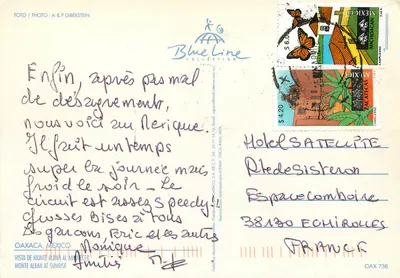 FOTO / PHOTO : A & P GIBERSTEIN
Blue Line
COLLECTION
MEXICO
MEXICO
ZACATECAS
$ 4.20
Enfin, après pas mal
de désagrément,
nous voici au Mexique.
Il fait un temps
super la journée mais
froid le soir - Le
circuit est assez speedy!
Grosses bises à tous
les garçons, Eric et les autres
Monique
Hotel SATELLITE
Rte de Sisteron
Espace Comboire
38130 ECHIROLLES
FRANCE
OAXACA, MEXICO
VISTA DE MONTE ALBAN AL AMANECER
MONTE ALBAN AT SUNRISE
OAX 738